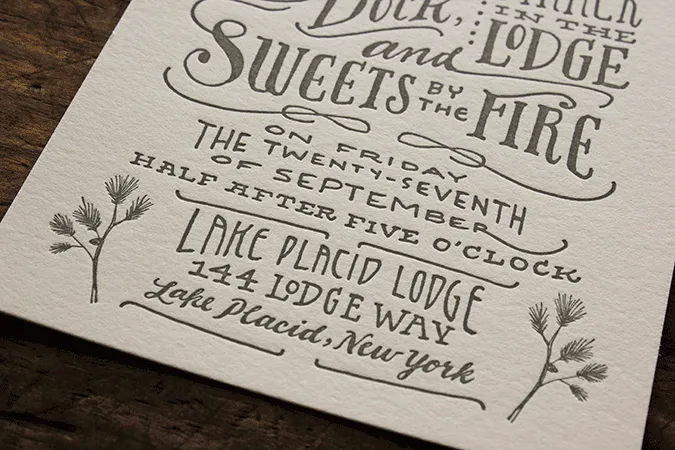 DOCK,
IN THE
and LODGE
SWEETS BY THE FIRE
ON FRIDAY
THE TWENTY-SEVENTH
OF SEPTEMBER
HALF AFTER FIVE O'CLOCK
LAKE PLACID LODGE
144 LODGE WAY
Lake Placid, New York